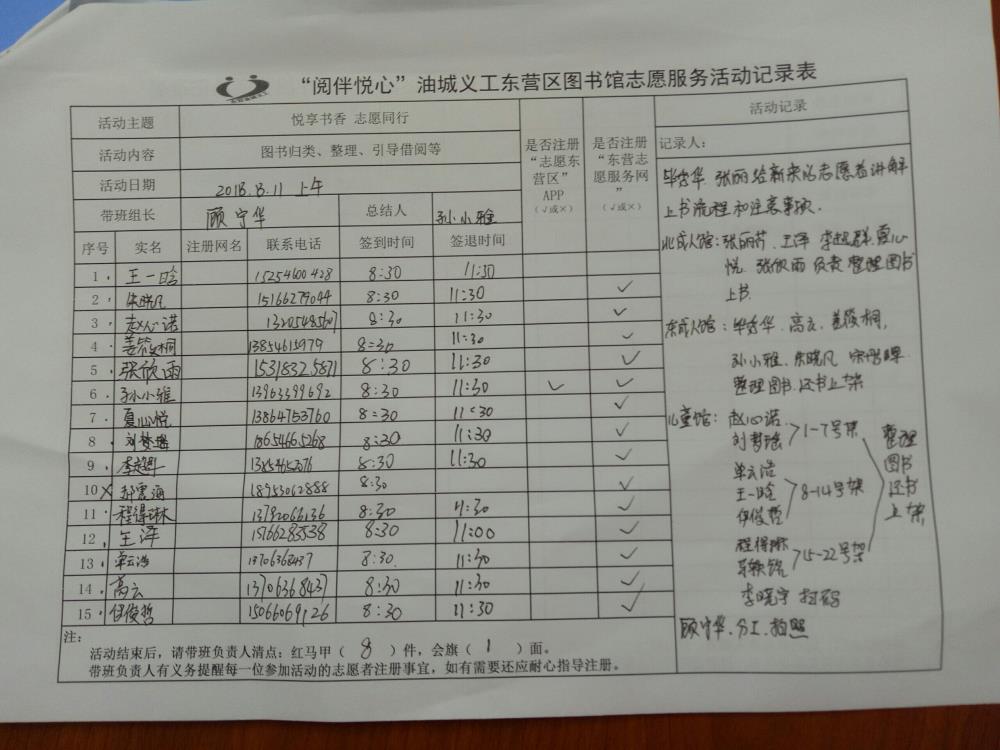 “阅伴悦心”油城义工东营区图书馆志愿服务活动记录表
活动主题 悦享书香 志愿同行
活动内容 图书归类、整理、引导借阅等
活动日期 2018.8.11 上午
带班组长 顾守华 总结人 孙小雅
是否注册“志愿东营区”APP（√或×）
是否注册“东营志愿服务网”（√或×）
序号 实名 注册网名 联系电话 签到时间 签退时间
1 王一晗 15254600428 8:30 11:30
2 朱晓凡 15166279044 8:30 11:30 √
3 赵心诺 8:30 11:30 √
4 姜筱桐 13854615979 8:30 11:30 √
5 张欣雨 15318325871 8:30 11:30 √
6 孙小雅 13963399692 8:30 11:30 √ √
7 夏心悦 13864753760 8:30 11:30 √
8 刘梦瑶 18654665268 8:30 11:30 √
9 8:30 11:30 √
10 × 18953062888 8:30 √
11 程得琳 13792066136 8:30 11:30 √
12 王泽 15766283538 8:30 11:00 √
13 单云浩 13706368437 8:30 11:30 √
14 高云 13706368437 8:30 11:30 √
15 伊俊哲 15066069126 8:30 11:30 √
注：
活动结束后，请带班负责人清点：红马甲（ 8 ）件，会旗（ 1 ）面。
带班负责人有义务提醒每一位参加活动的志愿者注册事宜，如有需要还应耐心指导注册。
活动记录
记录人：
毕秀华、张丽给新来的志愿者讲解
上书流程和注意事项.
北成人馆：张丽芹、王泽 夏心
悦、张欣雨 负责 整理图书
上书.
东成人馆：毕秀华、高云、姜筱桐,
孙小雅、朱晓凡
整理图书、还书上架
儿童馆：赵心诺
刘梦瑶 >1-7号架
单云浩
王一晗
伊俊哲 >8-14号架
程得琳
>15-22号架
整理图书还书上架
李晓宇 扫码
顾守华、分工、拍照